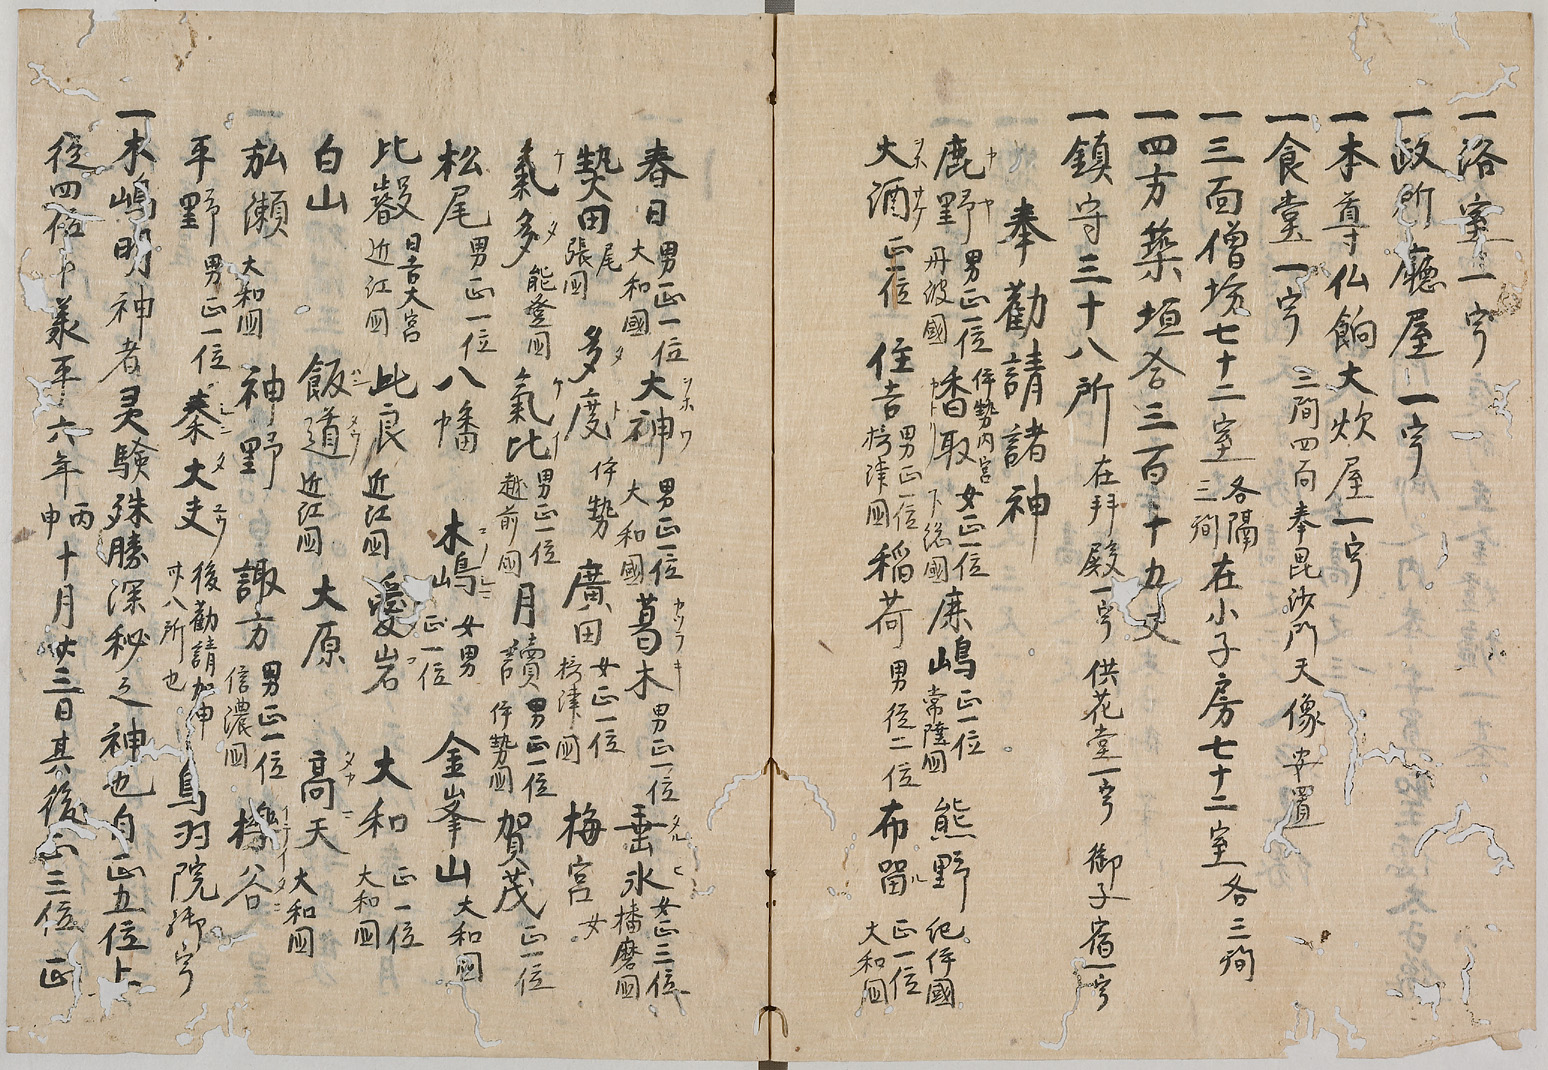 一浴室一宇
一政所廰屋一宇
一本尊仏餉大炊屋一宇
一食堂一宇 三間四面奉毘沙門天像安置
一三面僧坊七十二室 各隔三間 在小子房七十二室 各三間
一四方築垣合三百十九丈
一鎮守三十八所 在拜殿一宇 供花堂一宇 御子宿一宇
奉勸請諸神
鹿野 男正一位 丹波國 香取 伊勢内宮 女正一位 下総國 鹿嶋 正一位 常陸國 熊野 紀伊國
大酒 正一位 住吉 男正一位 摂津國 稲荷 男従二位 布留 正一位 大和國
春日 男正一位 大和國 大神 男正一位 大和國 葛木 男正一位 垂水 女正三位 播磨國
𤍠田 尾張國 多度 伊勢 廣田 女正一位 摂津國 梅宮 女
氣多 能登國 氣比 男正一位 越前國 月讀 男正一位 伊勢國 賀茂 正一位
松尾 男正一位 八幡 木嶋 女男 正一位 金峯山 大和國
比叡 日吉大宮 近江國 比良 近江國 愛岩 大和 正一位 大和國
白山 飯道 近江國 大原 高天 大和國
弘瀬 大和國 神野 諏方 男正一位 信濃國 谷
平野 男正一位 秦大夫 後勸請加申 卅八所也 鳥羽院御宇
一木嶋明神者灵験殊勝深秘之神也自正五位上
従四位 義平六年 丙申 十月廿三日其後正三位正